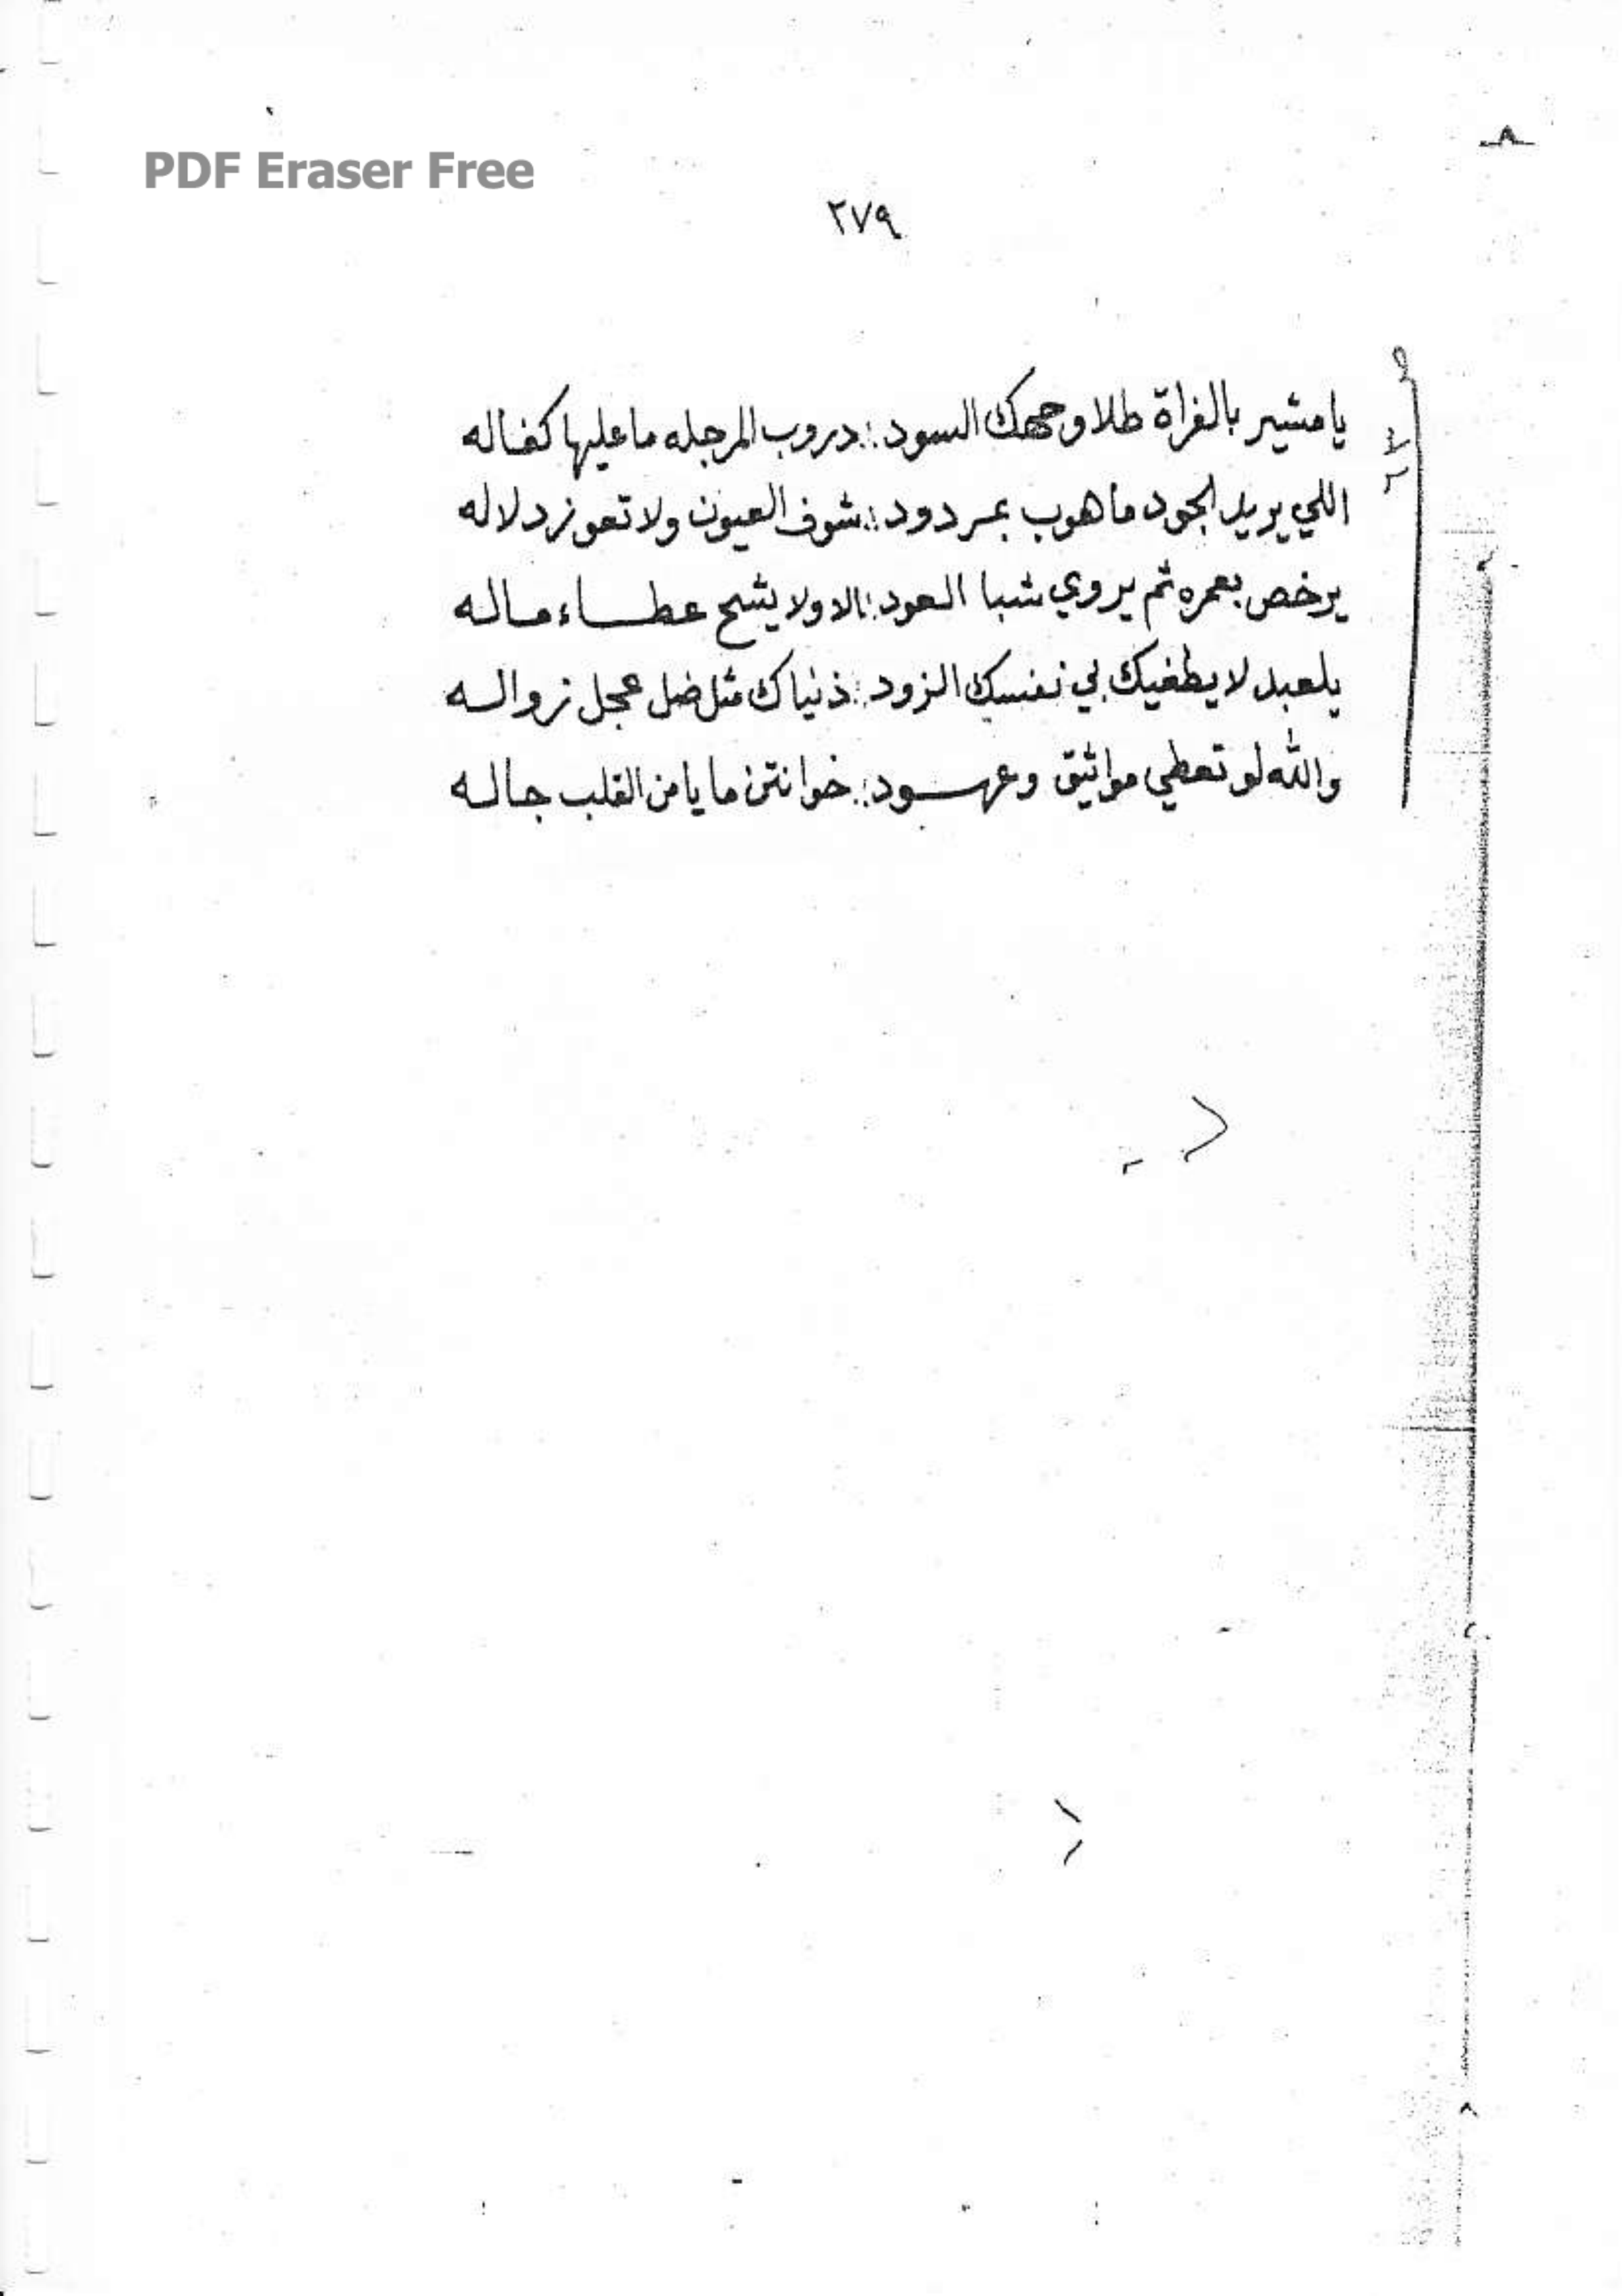 PDF Eraser Free
٢٧٩
يا مشير بالفراة طلا وجهك السود : دروب المرجله ما عليها كفاله
اللي يريد الجود ما هوب بمردود : شوف العيون ولا تعوز دلاله
يرخص بعمره ثم يروي شبا العود : الا ولا يشح عطاء ماله
يلعبد لا يطغيك بي نفسك الزود : ذنياك مثل ضل عجل زواله
والله لو تعطي مواثيق وعهود : خوانتن ما يامن القلب جاله